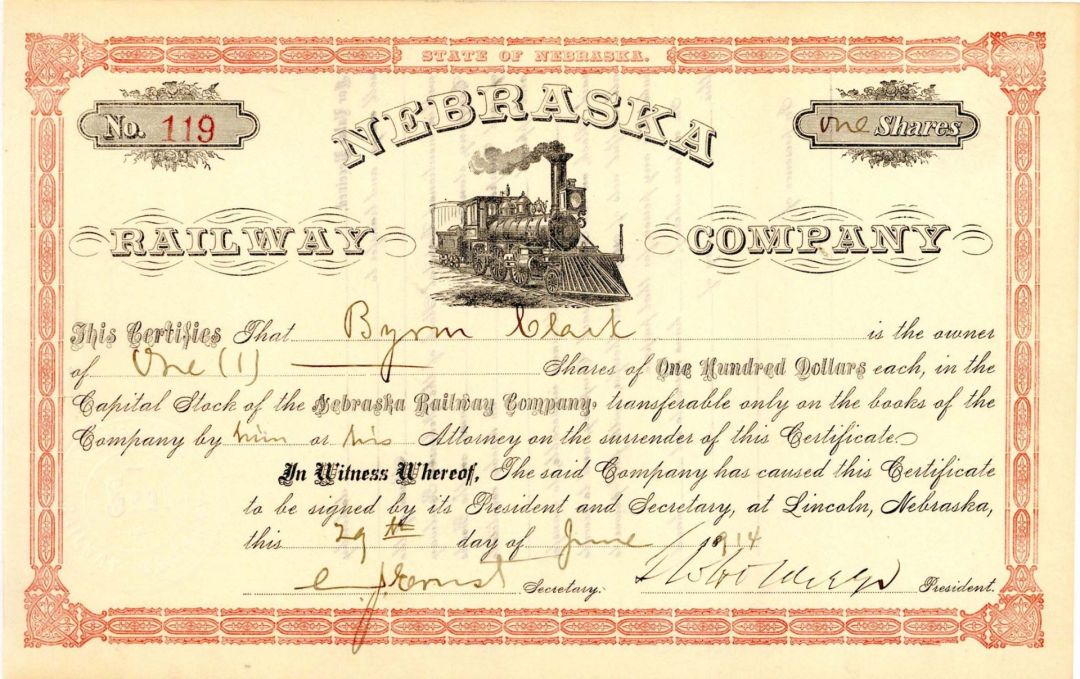 STATE OF NEBRASKA.
No. 119
NEBRASKA
one Shares
RAILWAY COMPANY
This Certifies That Byron Clark is the owner
of One (1) Shares of One Hundred Dollars each, in the
Capital Stock of the Nebraska Railway Company, transferable only on the books of the
Company by him or his Attorney on the surrender of this Certificate
In Witness Whereof, The said Company has caused this Certificate
to be signed by its President and Secretary, at Lincoln, Nebraska,
this 29th day of June 1914
C. J. Ernst Secretary. President.